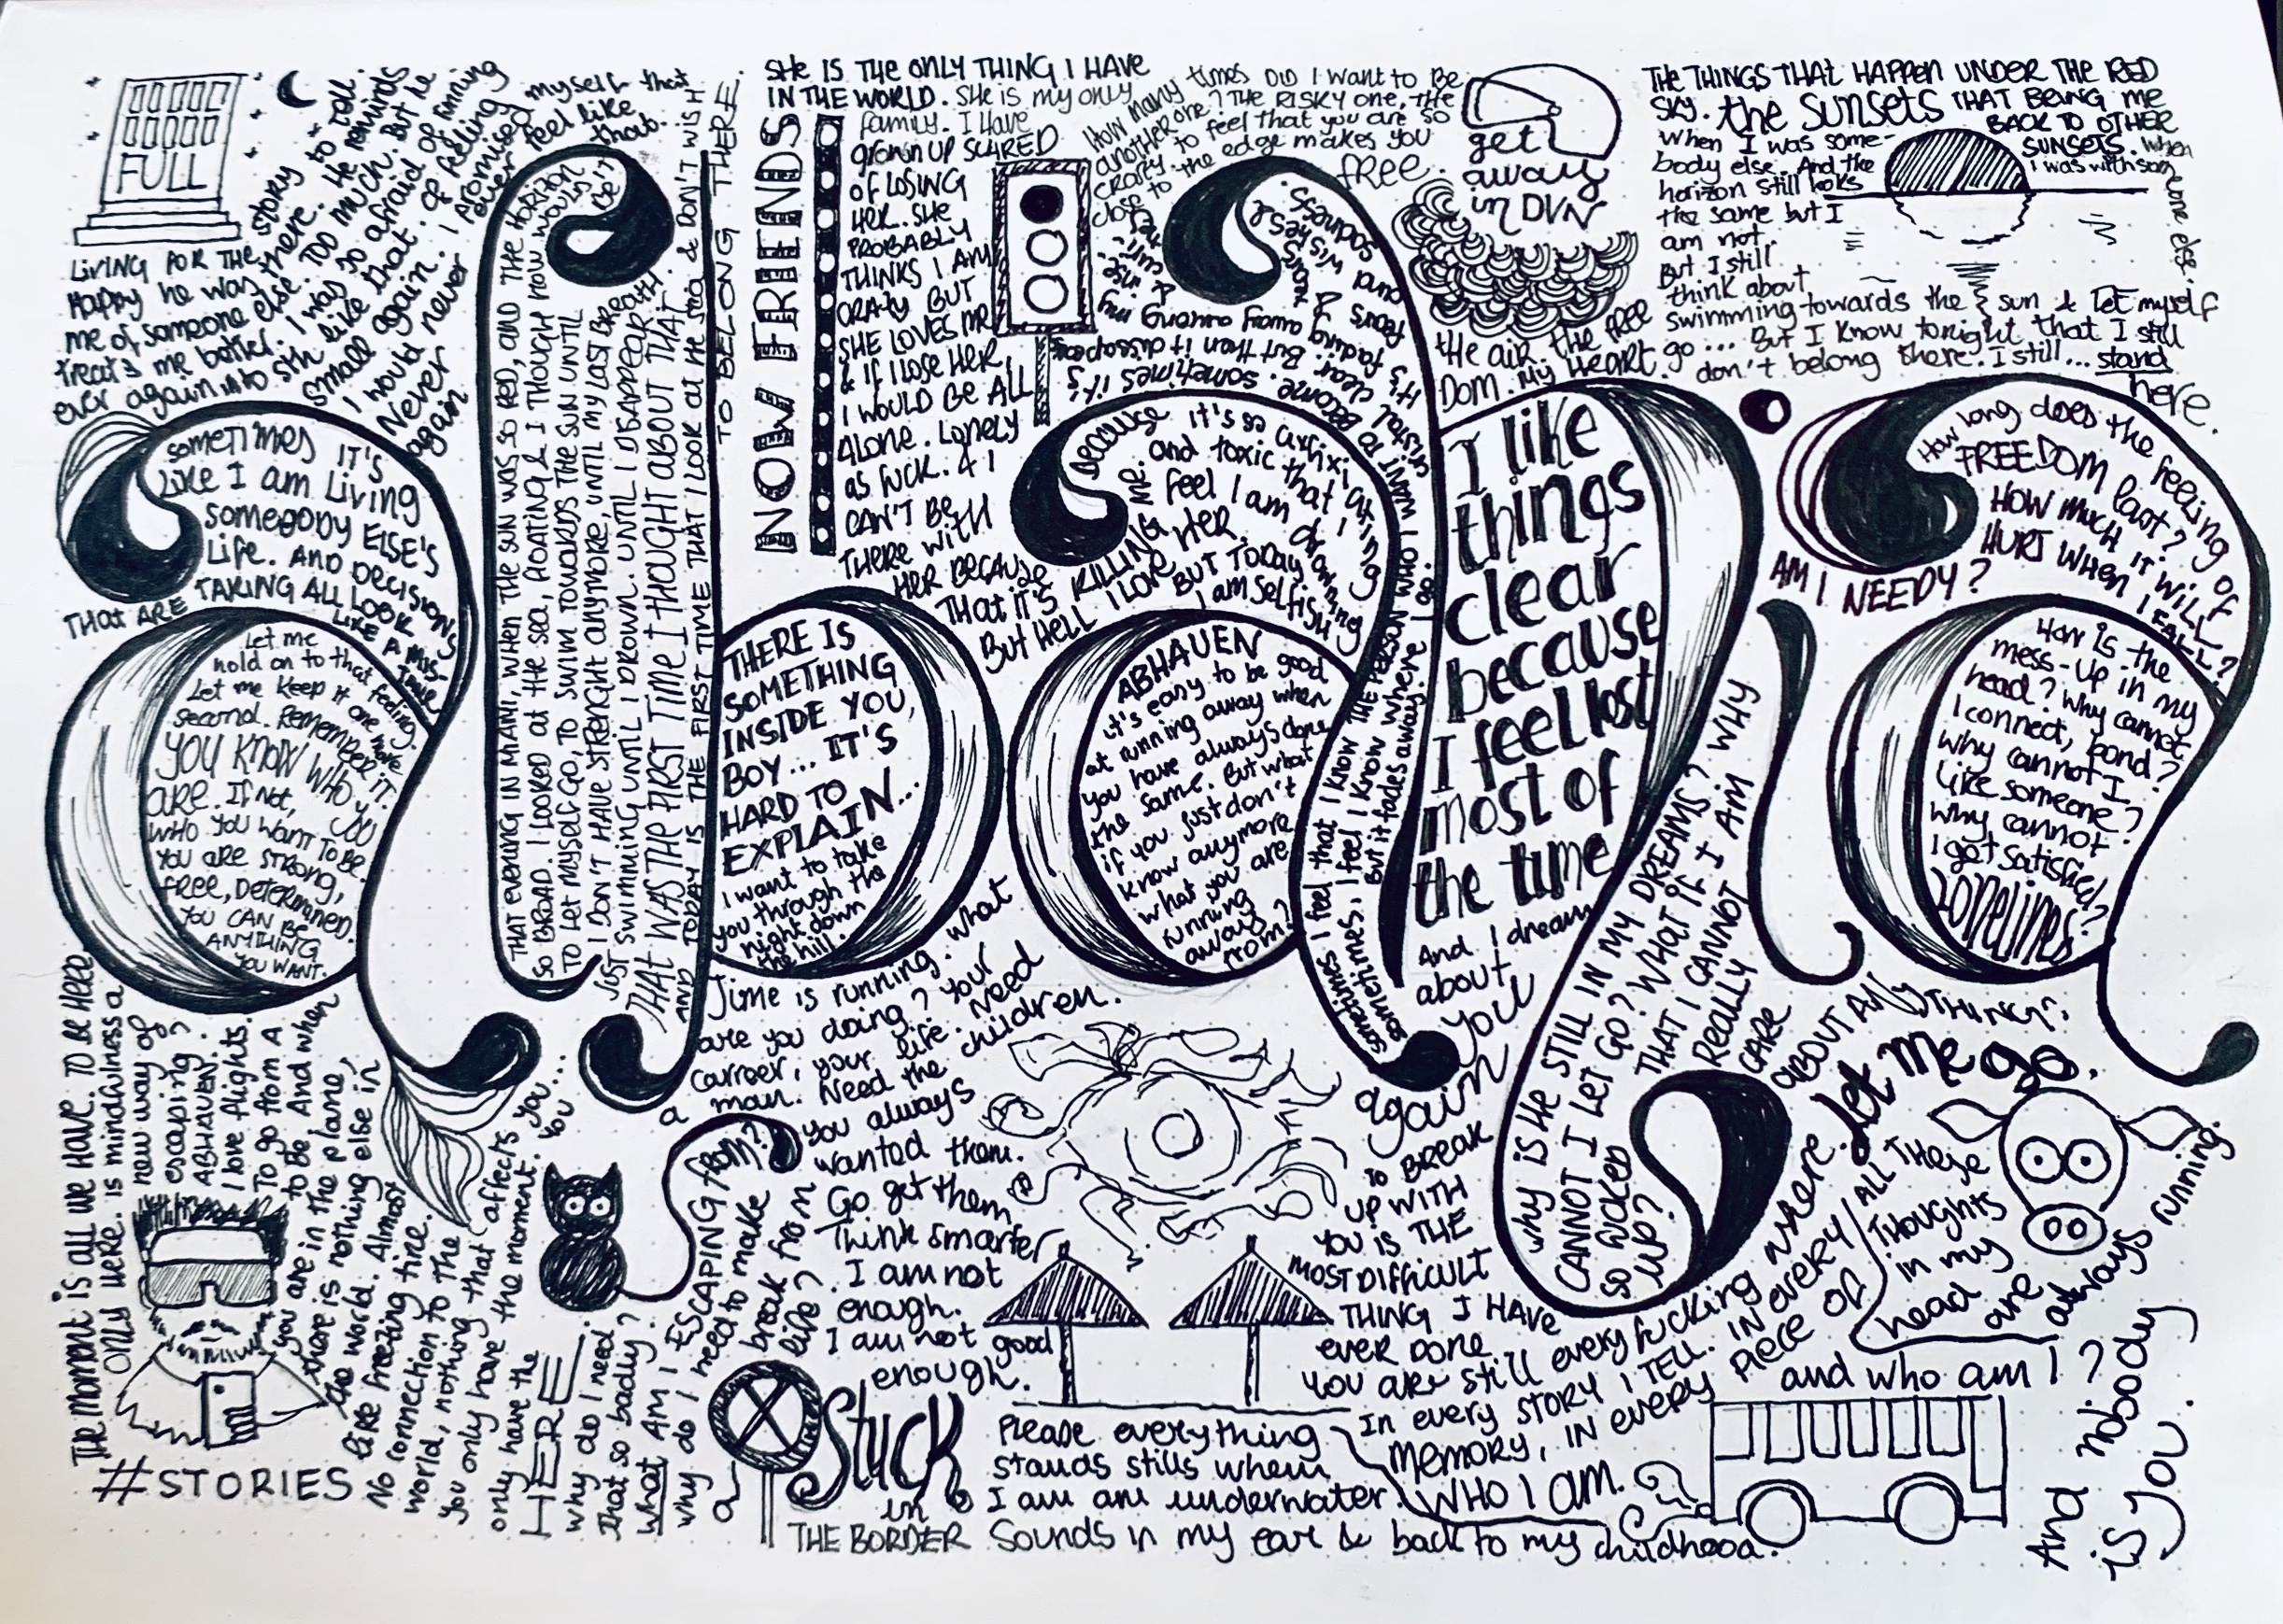 FULL
LIVING FOR THE STORY TO TELL.
Happy he was there. He reminds
me of someone else. TOO MUCH. But he
treats me better. I was so afraid of falling
ever again into sth like that. Of feeling
small again. I promised myself that
I would never ever feel like
Never that.
again
SHE IS THE ONLY THING I HAVE
IN THE WORLD. SHE is my only
family. I HAVE
grown UP SCARED
OF LOSING
HER. SHE
PROBABLY
THINKS I AM
CRAZY BUT
SHE LOVES ME
& IF I LOSE HER
I WOULD BE ALL
ALONE. LONELY
as FUCK. & I
CAN'T BE
THERE WITH
HER BECAUSE
THAT IT'S KILLING ME.
BUT HELL I LOVE HER.
BUT TODAY
I am selfish
NOW FRIENDS
How many times DID I want to Be
another one? THE RISKY one, THE
crazy to feel that you are so
close to the edge makes you
free.
get
away
in DVN
THE AIR. THE FREE
DOM. My HEART.
THE THINGS THAT HAPPEN UNDER THE RED
SKY. the SUNSETS THAT BRING ME
BACK TO OTHER
SUNSETS. When
I was with someone else.
When I was some-
body else. And the
horizon still looks
the same but I
am not.
But I still
think about
swimming towards the sun & let myself
go... But I know tonight that I still
don't belong there. I still... stand
here.
sometimes IT'S
Like I am Living
somebody ELSE'S
Life. AND DECISIONS
THAT ARE TAKING ALL LOOK
LIKE A MIS-
TAKE
Let me
hold on to that feeling.
Let me keep it one more
second. Remember it.
YOU KNOW WHO YOU
ARE. If Not,
WHO YOU WANT TO BE.
YOU ARE STRONG,
FREE, DETERMINED.
YOU CAN BE
ANYTHING
YOU WANT.
THAT EVENING IN MIAMI, WHEN THE SUN WAS SO RED, AND THE HORIZON
SO BROAD. I LOOKED AT THE SEA, FLOATING & I THOUGH HOW WOULD BE IT
TO LET MYSELF GO, TO SWIM TOWARDS THE SUN UNTIL
I DON'T HAVE STRENGHT ANYMORE, UNTIL MY LAST BREATH.
JUST SWIMMING UNTIL I DROWN. UNTIL I DISAPPEAR.
THAT WAS THE FIRST TIME I THOUGHT ABOUT THAT.
AND TODAY IS THE FIRST TIME THAT I LOOK AT THE SEA & DON'T WISH
TO BELONG THERE.
THERE IS
SOMETHING
INSIDE YOU,
BOY... IT'S
HARD TO
EXPLAIN...
I want to take
you through the
night down
the hill.
Because it's so
and toxic that I
feel I am drowning
It's fading away from
tears & fears
and wishes &
sadness.
ABHAUEN
it's easy to be good
at running away when
you have always done
the same. But what
if you just don't
know anymore
what you are
running
away
from?
sometimes I feel that I know THE PERSON WHO I WANT TO BECOME.
sometimes, I feel I know where I go.
But it fades away.
sometimes it's
clear. But then it dissapears
I like
things
clear
because
I feel lost
most of
the time
And I dream
about
you
again
How long does the feeling of
FREEDOM last?
HOW MUCH IT WILL
HURT WHEN I FALL?
AM I NEEDY?
How is the
mess-up in my
head? Why cannot
I connect, bond?
Why cannot I
like someone?
Why cannot
I get satisfied?
LONELINESS
WHY IS HE STILL IN MY DREAMS? WHY
CANNOT I LET GO? WHAT IF I AM
SO FUCKED THAT I CANNOT
UP? REALLY
CARE
ABOUT ANYTHING?
Let me go.
Time is running. What
are you doing? Your
carreer, your life. Need
a man. Need the children.
You always
wanted them.
Go get them
Think smarter
I am not
enough.
I am not good
enough.
TO BREAK
UP WITH
YOU IS THE
MOST DIFFICULT
THING I HAVE
EVER DONE
YOU ARE still every fucking where.
In every STORY I TELL. IN EVERY
MEMORY, IN EVERY PIECE OF
WHO I AM.
ALL THESE
THOUGHTS
in my
head
are
always running.
and who am I?
And nobody
is you.
THE MOMENT IS all we HAVE. TO BE HERE
ONLY HERE. is mindfulness a
new way of
escaping?
ABHAUEN.
I love flights.
To go from A
to B. And when
you are in the plane,
there is nothing else in
the world. Almost
like freezing time.
No connection to the
world, nothing that affects you...
You only have the moment. You
only have the
HERE.
#STORIES
why do I need
that so badly?
What AM I ESCAPING FROM?
Why do I need to make
a break from
life?
Stuck
in
THE BORDER
Please everything
stands stills when
I am an underwater.
Sounds in my ear & back to my childhood.